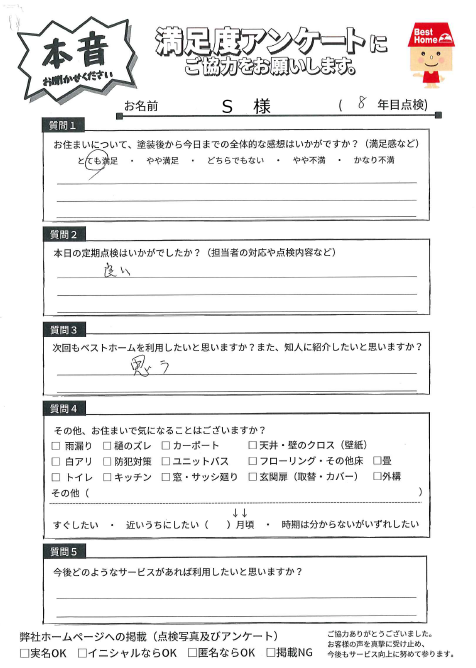 本音
お聞かせください
満足度アンケートに
ご協力をお願いします。
Best Home
お名前 S 様 ( 8 年目点検)
質問1
お住まいについて、塗装後から今日までの全体的な感想はいかがですか？（満足感など）
とても満足 ・ やや満足 ・ どちらでもない ・ やや不満 ・ かなり不満
質問2
本日の定期点検はいかがでしたか？（担当者の対応や点検内容など）
良い
質問3
次回もベストホームを利用したいと思いますか？また、知人に紹介したいと思いますか？
思う
質問4
その他、お住まいで気になることはございますか？
□ 雨漏り □ 樋のズレ □ カーポート □ 天井・壁のクロス（壁紙）
□ 白アリ □ 防犯対策 □ ユニットバス □ フローリング・その他床 □畳
□ トイレ □ キッチン □ 窓・サッシ廻り □ 玄関扉（取替・カバー） □外構
その他（ ）
↓↓
すぐしたい ・ 近いうちにしたい（ ）月頃 ・ 時期は分からないがいずれしたい
質問5
今後どのようなサービスがあれば利用したいと思いますか？
弊社ホームページへの掲載（点検写真及びアンケート）
□実名OK □イニシャルならOK □匿名ならOK □掲載NG
ご協力ありがとうございました。
お客様の声を真摯に受け止め、
今後もサービス向上に努めて参ります。